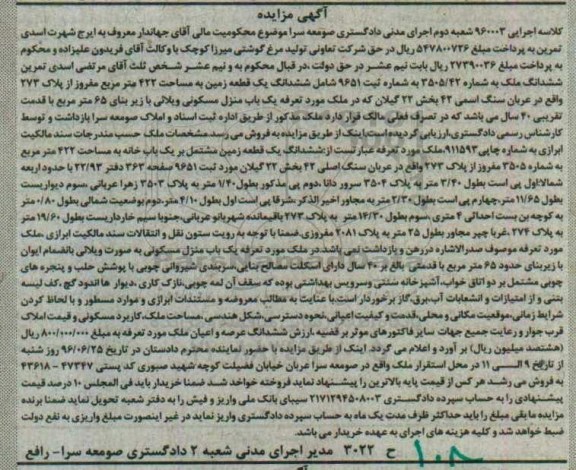 آگهی مزایده
کلاسه اجرایی ۹۶۰۰۰۳ شعبه دوم اجرای مدنی دادگستری صومعه سرا موضوع محکومیت مالی آقای جهاندار معروف به ایرج شهرت اسدی
تمرین به پرداخت مبلغ ۵۴۷۸۰۰۷۲۶ ریال در حق شرکت تعاونی تولید مرغ گوشتی میرزا کوچک با وکالت آقای فریدون علیزاده و محکوم
به پرداخت مبلغ ۲۷۳۹۰۰۳۶ ریال بابت نیم عشر در حق دولت ،در قبال محکوم به و نیم عشر شخص ثلث آقای مرتضی اسدی تمرین
ششدانگ ملک به شماره ۳۵۰۵/۴۲ به شماره ثبت ۹۶۵۱ شامل ششدانگ یک قطعه زمین به مساحت ۴۲۲ متر مربع مفروز از پلاک ۲۷۳
واقع در عربان سنگ اسمی ۴۲ بخش ۲۲ گیلان که در ملک مورد تعرفه یک باب منزل مسکونی ویلائی با زیر بنای ۶۵ متر مربع با قدمت
تقریبی ۴۰ سال می باشد که در تصرف فعلی مالک قرار دارد ملک مذکور از طریق اداره ثبت اسناد و املاک صومعه سرا بازداشت و توسط
کارشناس رسمی دادگستری،ارزیابی گردیده است.اینک از طریق مزایده به فروش می رسد.مشخصات ملک حسب مندرجات سند مالکیت
ابرازی به شماره چاپی ۹۱۱۵۹۳،ملک مورد تعرفه عبارتست از:ششدانگ یک قطعه زمین مشتمل بر یک باب خانه به مساحت ۴۲۲ متر مربع
به شماره ۳۵۰۵ مفروز از پلاک ۲۷۳ واقع در عربان سنگ اصلی ۴۲ بخش ۲۲ گیلان مورد ثبت ۹۶۵۱ صفحه ۳۶۳ دفتر ۲۲/۹۳ با حدود اربعه
شمالا:اول پی است بطول ۳/۴۰ متر به پلاک ۳۵۰۴ سرور دانا ،دوم پی مذکور بطول ۱/۴۰ متر به پلاک ۳۵۰۳ زهرا عربانی ،سوم دیواریست
بطول ۱۱/۶۵ متر،چهارم پی است بطول ۲/۳۰ متر به مجاور اخیر الذکر،شرقا پی است اول بطول ۴/۱۰ متر،دوم بوضعیت شمالی بطول ۰/۸۰ متر
به کوچه بن بست احداثی ۴ متری ،سوم بطول ۱۴/۳۰ متر به پلاک ۲۷۳ باقیمانده شهربانو عربانی،جنوبا سیم خارداریست بطول ۱۹/۶۰ متر
به پلاک ۲۷۴ ،غربا چپر مجاور بطول ۲۵ متر به پلاک ۲۰۸۱ مفروزی.ضمنا با توجه به رویت ستون نقل و انتقالات سند مالکیت ابرازی ،ملک
مورد تعرفه موصوف صدرالاشاره در رهن و بازداشت نمی باشد.در ملک مورد تعرفه یک باب منزل مسکونی به صورت ویلائی بانضمام ایوان
با زیربنای حدود ۶۵ متر مربع با قدمتی بالغ بر ۴۰ سال دارای اسکلت مصالح بنایی،سربندی شیروانی چوبی با پوشش حلب و پنجره های
چوبی مشتمل بر دو اتاق خواب،آشپزخانه سنتی وسرویس بهداشتی بوده که سقف آن لمه چوبی،نازک کاری ،دیوار ها اندود گچ ،کف لیسه
بتنی و از امتیازات و انشعابات آب،برق،گاز برخوردار است.با عنایت به مطالب معروضه و مستندات ابرازی و موارد مسطور و با لحاظ کردن
شرایط زمانی،موقعیت مکانی و محلی،قدمت و کیفیت اعیانی،نحوه دسترسی،شکل هندسی،مساحت ملک،کاربرد مسکونی و قیمت املاک
قرب جوار و رعایت جمیع جهات سایر فاکتورهای موثر بر قضیه ،ارزش ششدانگ عرصه و اعیان ملک مورد تعرفه به مبلغ ۸۰۰/۰۰۰/۰۰۰ ریال
(هشتصد میلیون ریال) بر آورد و اعلام می گردد. اینک از طریق مزایده با حضور نماینده محترم دادستان در تاریخ ۹۶/۰۶/۲۵ روز شنبه
از تاریخ ۹ الی ۱۱ در محل استقرار ملک واقع در صومعه سرا عربان خیابان فضیلت کوچه شهید صبوری کد پستی ۴۷۳۴۷ – ۴۳۶۱۸
به فروش می رشد هر کس از قیمت پایه بالاترین را پیشنهاد نماید فروخته خواهد شد ضمنا خریدار باید فی المجلس ۱۰ درصد قیمت
پیشنهادی را به حساب سپرده دادگستری ۲۱۷۱۲۹۴۵۰۸۰۰۳ سیبای بانک ملی واریز و فیش را به دفتر شعبه تحویل نماید ضمنا برنده
مزایده ما بقی مبلغ را باید حداکثر ظرف مدت یک ماه به حساب سپرده دادگستری واریز نماید در غیر اینصورت مبلغ واریزی به نفع دولت
ضبط خواهد شد و کلیه هزینه های اجرای به عهده خریدار می باشد.
ح ۳۰۲۲ مدیر اجرای مدنی شعبه ۲ دادگستری صومعه سرا- رافع
۱۰۸